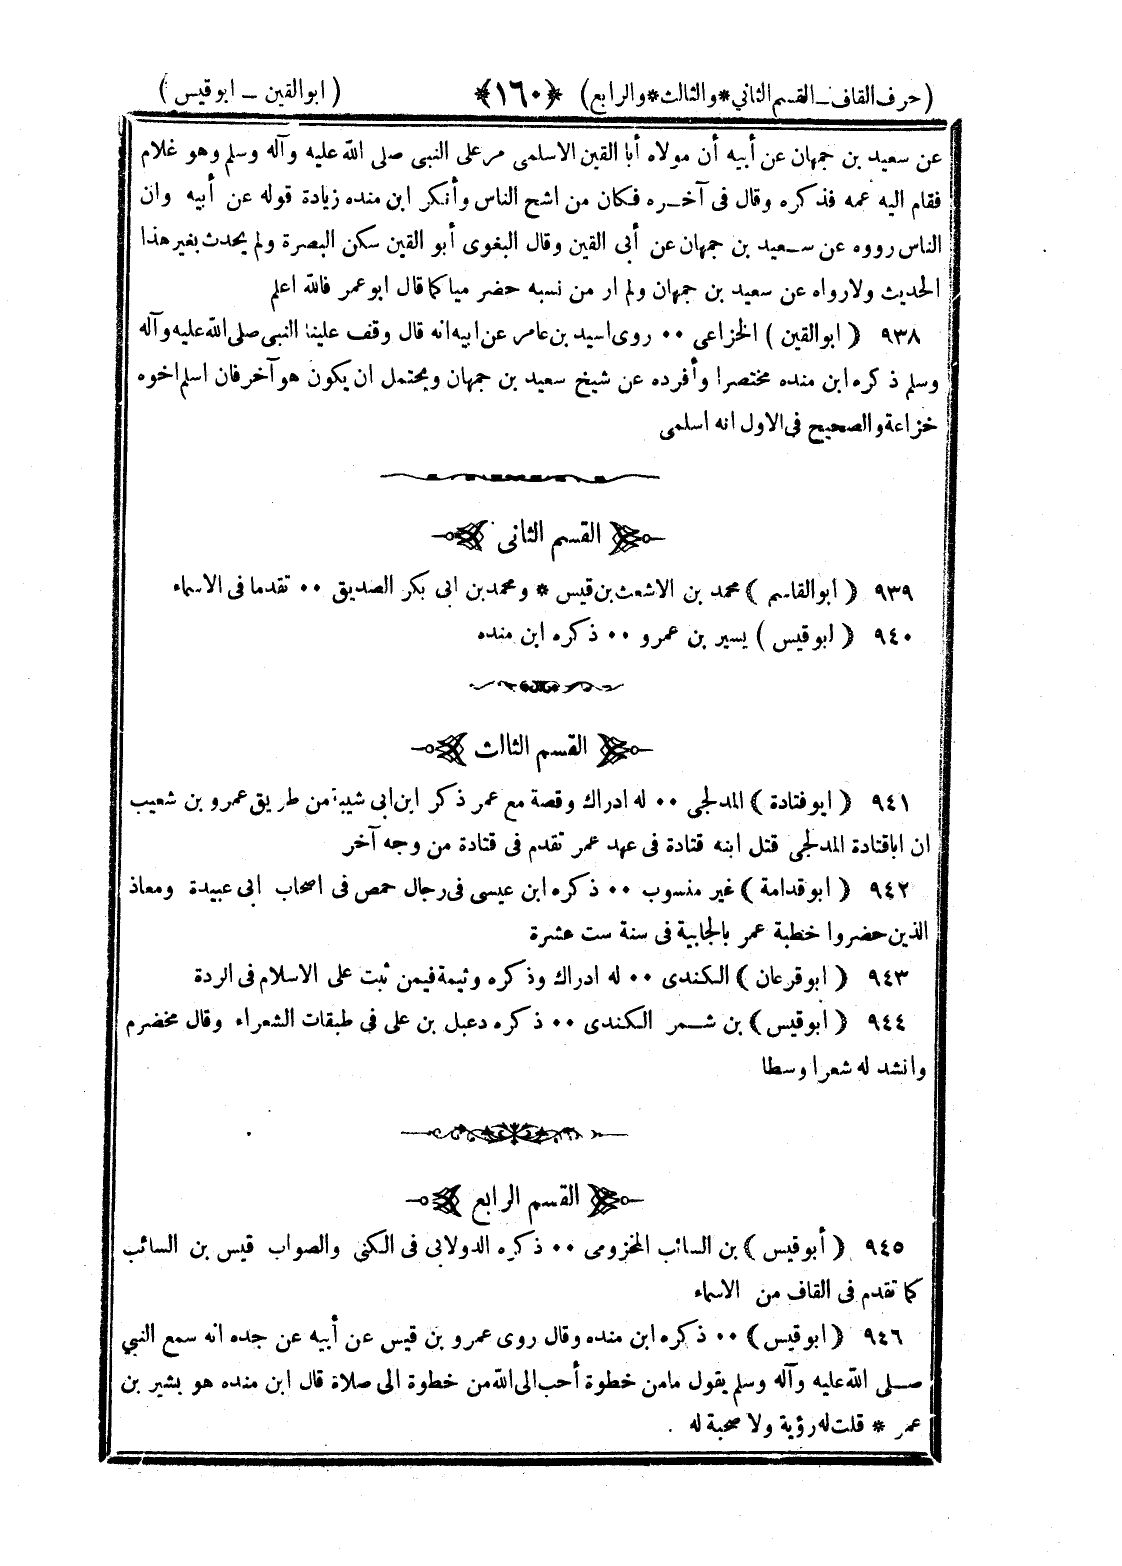 ( حرف القاف ـ القسم الثاني * والثالث * والرابع ) ﴿١٦٠﴾ ( ابوالقين ـ ابوقيس )
عن سعيد بن جمهان عن أبيه أن مولاه أبا القين الاسلمى مر على النبى صلى الله عليه وآله وسلم وهو غلام
فقام اليه عمه فذكره وقال فى آخـره فكان من اشح الناس وأنكر ابن منده زيادة قوله عن أبيه وان
الناس رووه عن سـعيد بن جمهان عن أبى القين وقال البغوى أبو القين سكن البصرة ولم يحدث بغير هذا
الحديث ولا رواه عن سعيد بن جمهان ولم ار من نسبه حضر مياكما قال ابو عمر فالله اعلم
٩٣٨ ( ابوالقين ) الخزاعى ٠٠ روى اسيد بن عامر عن ابيه انه قال وقف علينا النبى صلى الله عليه وآله
وسلم ذكره ابن منده مختصرا وأفرده عن شيخ سعيد بن جمهان ويحتمل ان يكون هو آخر فان اسلم اخوه
خزاعة والصحيح فى الاول انه اسلمى
القسم الثانى
٩٣٩ ( ابوالقاسم ) محمد بن الاشعث بن قيس * ومحمد بن ابى بكر الصديق ٠٠ تقدما فى الاسماء
٩٤٠ ( ابوقيس ) يسير بن عمرو ٠٠ ذكره ابن منده
القسم الثالث
٩٤١ ( ابوقتادة ) المدلجى ٠٠ له ادراك وقصة مع عمر ذكر ابن ابى شيبة من طريق عمرو بن شعيب
ان اباقتادة المدلجى قتل ابنه قتادة فى عهد عمر تقدم فى قتادة من وجه آخر
٩٤٢ ( ابوقدامة ) غير منسوب ٠٠ ذكره ابن عيسى فى رجال حمص فى اصحاب ابى عبيدة ومعاذ
الذين حضروا خطبة عمر بالجابية فى سنة ست عشرة
٩٤٣ ( ابوقرعان ) الكندى ٠٠ له ادراك وذكره وثيمة فيمن ثبت على الاسلام فى الردة
٩٤٤ ( أبوقيس ) بن شـمر الكندى ٠٠ ذكره دعبل بن على فى طبقات الشعراء وقال مخضرم
وانشد له شعرا وسطا
القسم الرابع
٩٤٥ ( أبوقيس ) بن السائب المخزومى ٠٠ ذكره الدولابى فى الكنى والصواب قيس بن السائب
كما تقدم فى القاف من الاسماء
٩٤٦ ( ابوقيس ) ٠٠ ذكره ابن منده وقال روى عمرو بن قيس عن أبيه عن جده انه سمع النبي
صـلى الله عليه وآله وسلم يقول مامن خطوة أحب الى الله من خطوة الى صلاة قال ابن منده هو بشير بن
عمر * قلت له رؤية ولا صحبة له .